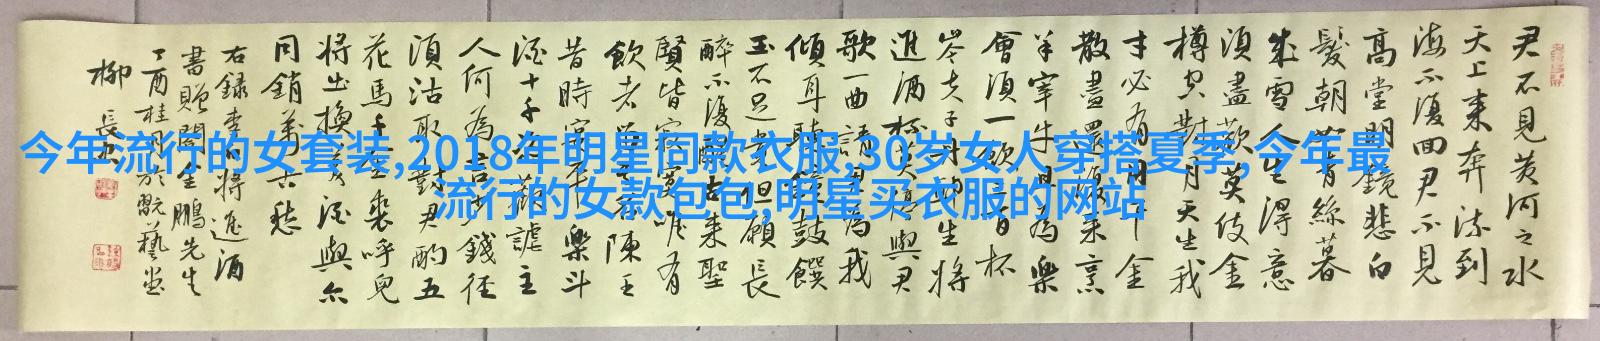 今年流行的女套装,2018年明星同款衣服,30岁女人穿搭夏季,今年最
流行的女款包包,明星买衣服的网站
君不見黃河之水
天上来奔流到
海不復回君不見
高堂明鏡悲白
髮朝如青絲暮
成雪人生得意
須盡歡莫使金
樽空對月天生我
才必有用千金
散盡還復来烹
羊宰牛且為樂
會須一飲三百杯
岑夫子丹邱生將
進酒杯莫停與君
歌一曲請君為我
傾耳聽鐘鼓饌
玉不足貴但願長
醉不復醒古来聖
賢皆寂寞唯有
飲者留其名陳王
昔時宴平樂斗
酒十千恣歡謔主
人何為言少錢徑
須沽取對君酌五
花馬千金裘呼兒
將出換美酒與尔
同銷萬古愁
右録李白將進酒
書贈閻金鵬先生
丁酉桂月於翫藝堂
柳長